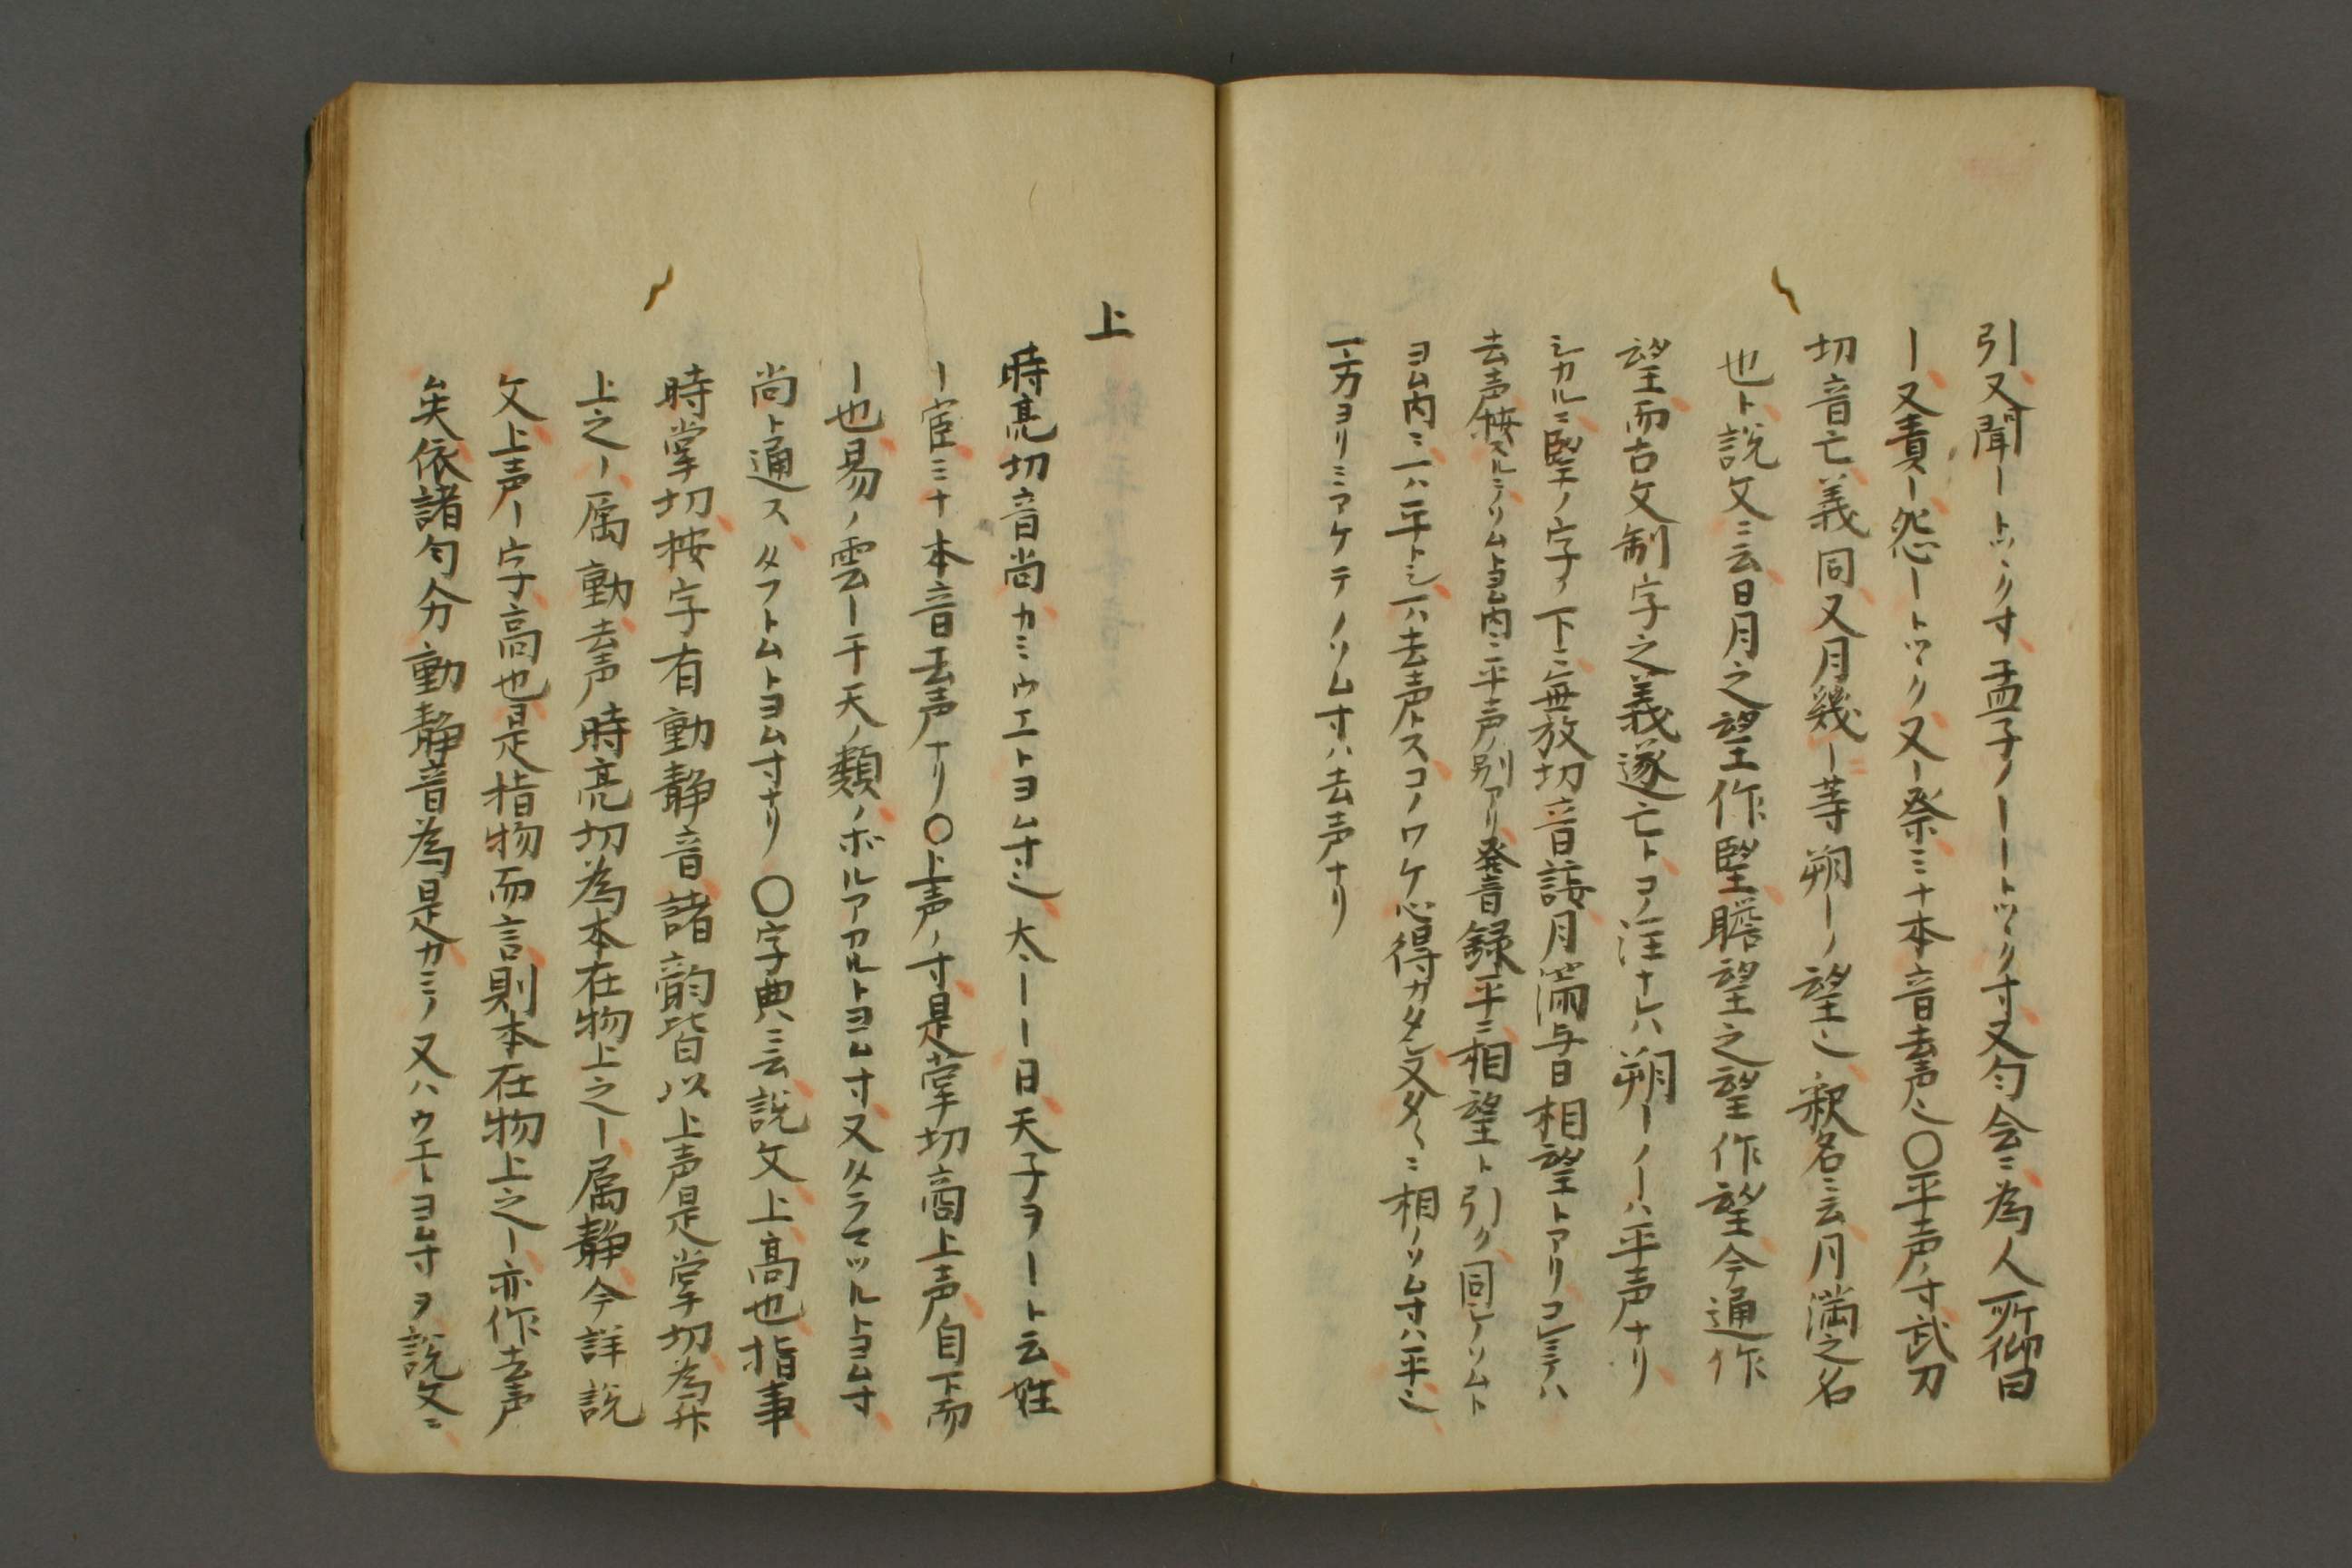 引又聞ートツヽク寸孟子ノーートツヽク寸又匀会ニ為人所仰曰
ー又責ー怨ートツヽク又ー祭ミナ本音去声也〇平声ノ寸武方
切音亡義同又月幾ー等朔ーノ望也釈名ニ云月満之名
也ト説文ニ云日月之望作朢瞻望之望作望今通作
望而古文制字之義遂亡トコノ注ナレハ朔ーノーハ平声ナリ
シカルニ朢ノ字ノ下ニ無放切音諼月満与日相望トアリコレミテハ
去声按スルニノソムトヨム内ニ平声ノ別アリ発音録平ニ相望ト引ク同シノソムト
ヨム内ニ一ハ平トシ一ハ去声トスコノワケ心得カタシ又タヽニ相ノソム寸ハ平也
一方ヨリミアケテノソム寸ハ去声ナリ
上
時亮切音尚カミウエトヨム寸也太ーー日天子ヲート云姓
ー宦ミナ本音去声ナリ〇上声ノ寸是掌切商上声自下而
ー也易ノ雲ー于天ノ類ノボルアカルトヨム寸又タテマツルトヨム寸
尚ト通スタフトムトヨム寸ナリ〇字典ニ云説文上高也指事
時掌切按字有動静音諸韵皆以上声是掌切為升
上之ー属動去声時亮切為本在物上之ー属静今詳説
文上声ー字高也是指物而言則本在物上之ー亦作去声
矣依諸匀分動静音為是カミノ又ハウエトヨム寸ヲ説文ニ